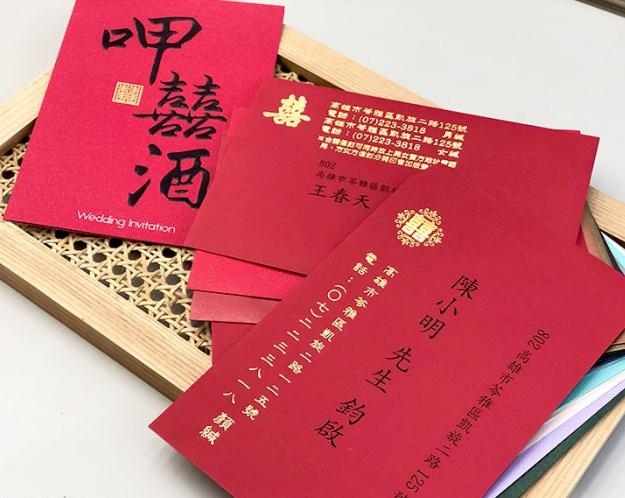 呷
囍
酒
Wedding Invitation
囍
高雄市苓雅區凱旋二路125號
電話：(07)223-3818 男緘
高雄市苓雅區凱旋二路125號
電話：(07)223-3818 女緘
802
高雄市苓雅區凱
王春天
囍
802 高雄市苓雅區凱旋二路125號
陳小明 先生 鈞啟
高雄市苓雅區凱旋二路一二五號
電話：(〇七)二二三三八一八 顏緘